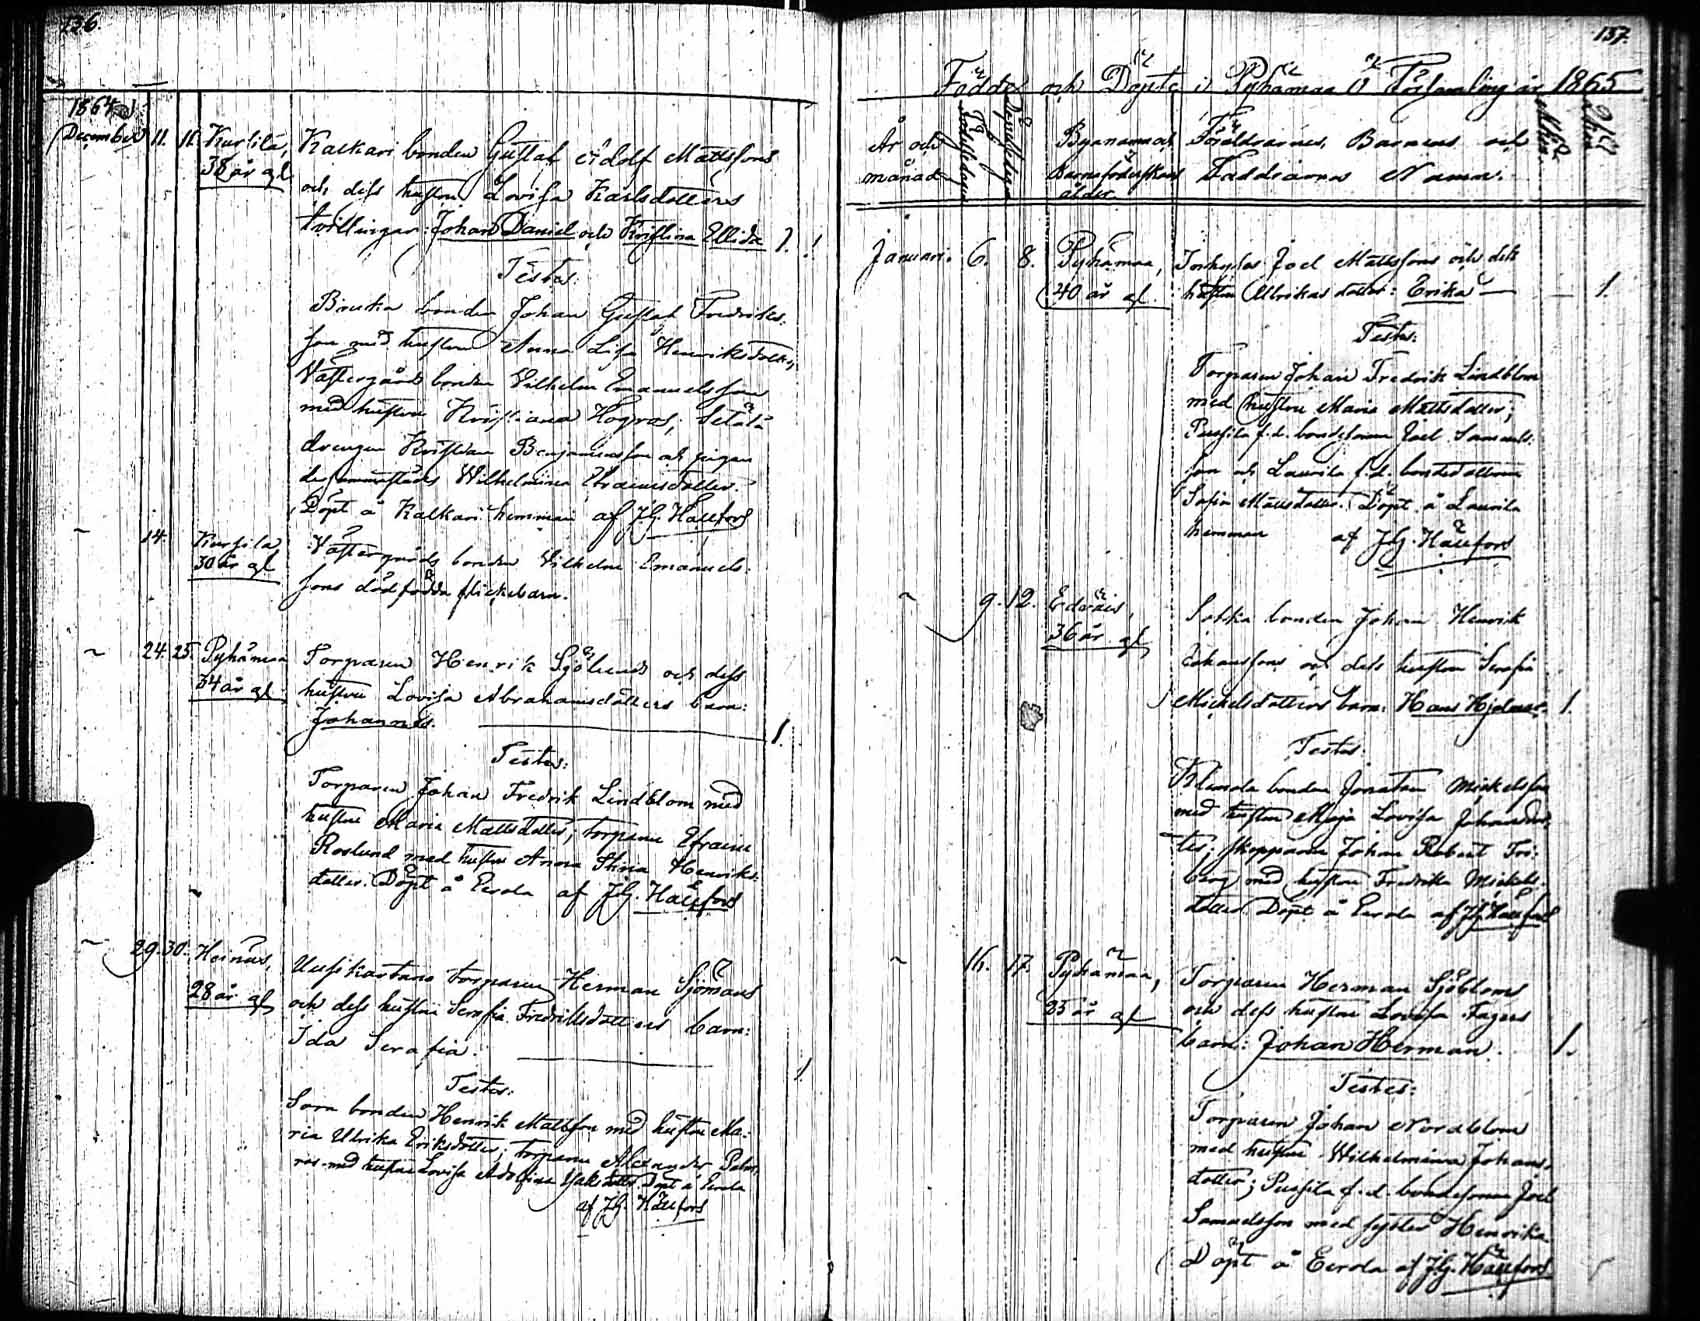 136.
1864
December 11. 16. Kursila,
38 år gl
Kalkari bonden Gustaf Adolf Mattssons
och dess hustru Lovisa Karlsdotters
tvillingar: Johan Daniel och Kristina Elida 1. 1
Testes:
bonden Johan Gustaf Fredriks-
son med hustru Anna Lisa Henriksdotter,
Västergård bonden Vilhelm Emanuelsson
med hustru Kristiana
drengen Kristian Benjaminsson och pigan
Wilhelmina Efraimsdotter.
Döpt å Kalkari hemman af J.G. Hällfors
14. Kursila
30 år gl
Västergårds bonden Vilhelm Emanuels-
sons dödfödda flickebarn.
24. 25. Pyhämaa
34 år gl
Torparen Henrik Sjölunds och dess
hustru Lovisa Abrahamsdotters barn:
Johannes. 1.
Testes:
Torparen Johan Fredrik Lindblom med
hustru Maria Mattsdotter; torparen Efraim
Roslund med hustru Anna Stina Henriks-
dotter. Döpt å Eerola af J.G. Hällfors
29. 30. Heinäis,
28 år gl
Uusikartano torparen Herman Sjömans
och dess hustru Serafia Fredriksdotters barn:
Ida Serafia. 1
Testes:
bonden Henrik Mattsson med hustru Ma-
ria Ulrika Eriksdotter; torparen Alexander
med hustru Lovisa Adolfina Döpt å Eerola
af J.G. Hällfors
137.
Födde och Döpte i Pyhämaa Ö Församling år 1865
År och
månad
Födelsedagen
Döpelsedagen
Byanamnet
Barnaföderskans
ålder
Föräldrarnes, Barnens och
Faddrarnes Namn.
Januari. 6. 8. Pyhämaa,
40 år gl.
Inhyses Joel Mattssons och dess
hustru Ulrikas dotter: Erika — 1.
Testes:
Torparen Johan Fredrik Lindblom
med hustru Maria Mattsdotter;
Pussila f.d. bondesonen Joel Samuels-
son och Laurila f.d. bondedottern
Sofia Mattsdotter. Döpt å Laurila
hemman af J.G. Hällfors
9. 12. Edväis,
36 år gl
bonden Johan Henrik
Johanssons och dess hustru Serafia
Mickelsdotters barn: Hans Hjalmar. 1.
Testes:
bonden Jonatan Mickelsson
med hustru Maja Lovisa Johansdot-
ter; skepparen Johan Robert
med hustru Fredrika Mickels-
dotter. Döpt å Eerola af J.G. Hällfors
16. 17. Pyhämaa,
25 år gl
Torparen Herman Sjöbloms
och dess hustru Lovisa Fagers
barn: Johan Herman. 1.
Testes:
Torparen Johan Nordblom
med hustru Wilhelmina Johans-
dotter; Pussila f.d. bondesonen Joel
Samuelsson med syster Henrika
Döpt å Eerola af J.G. Hällfors